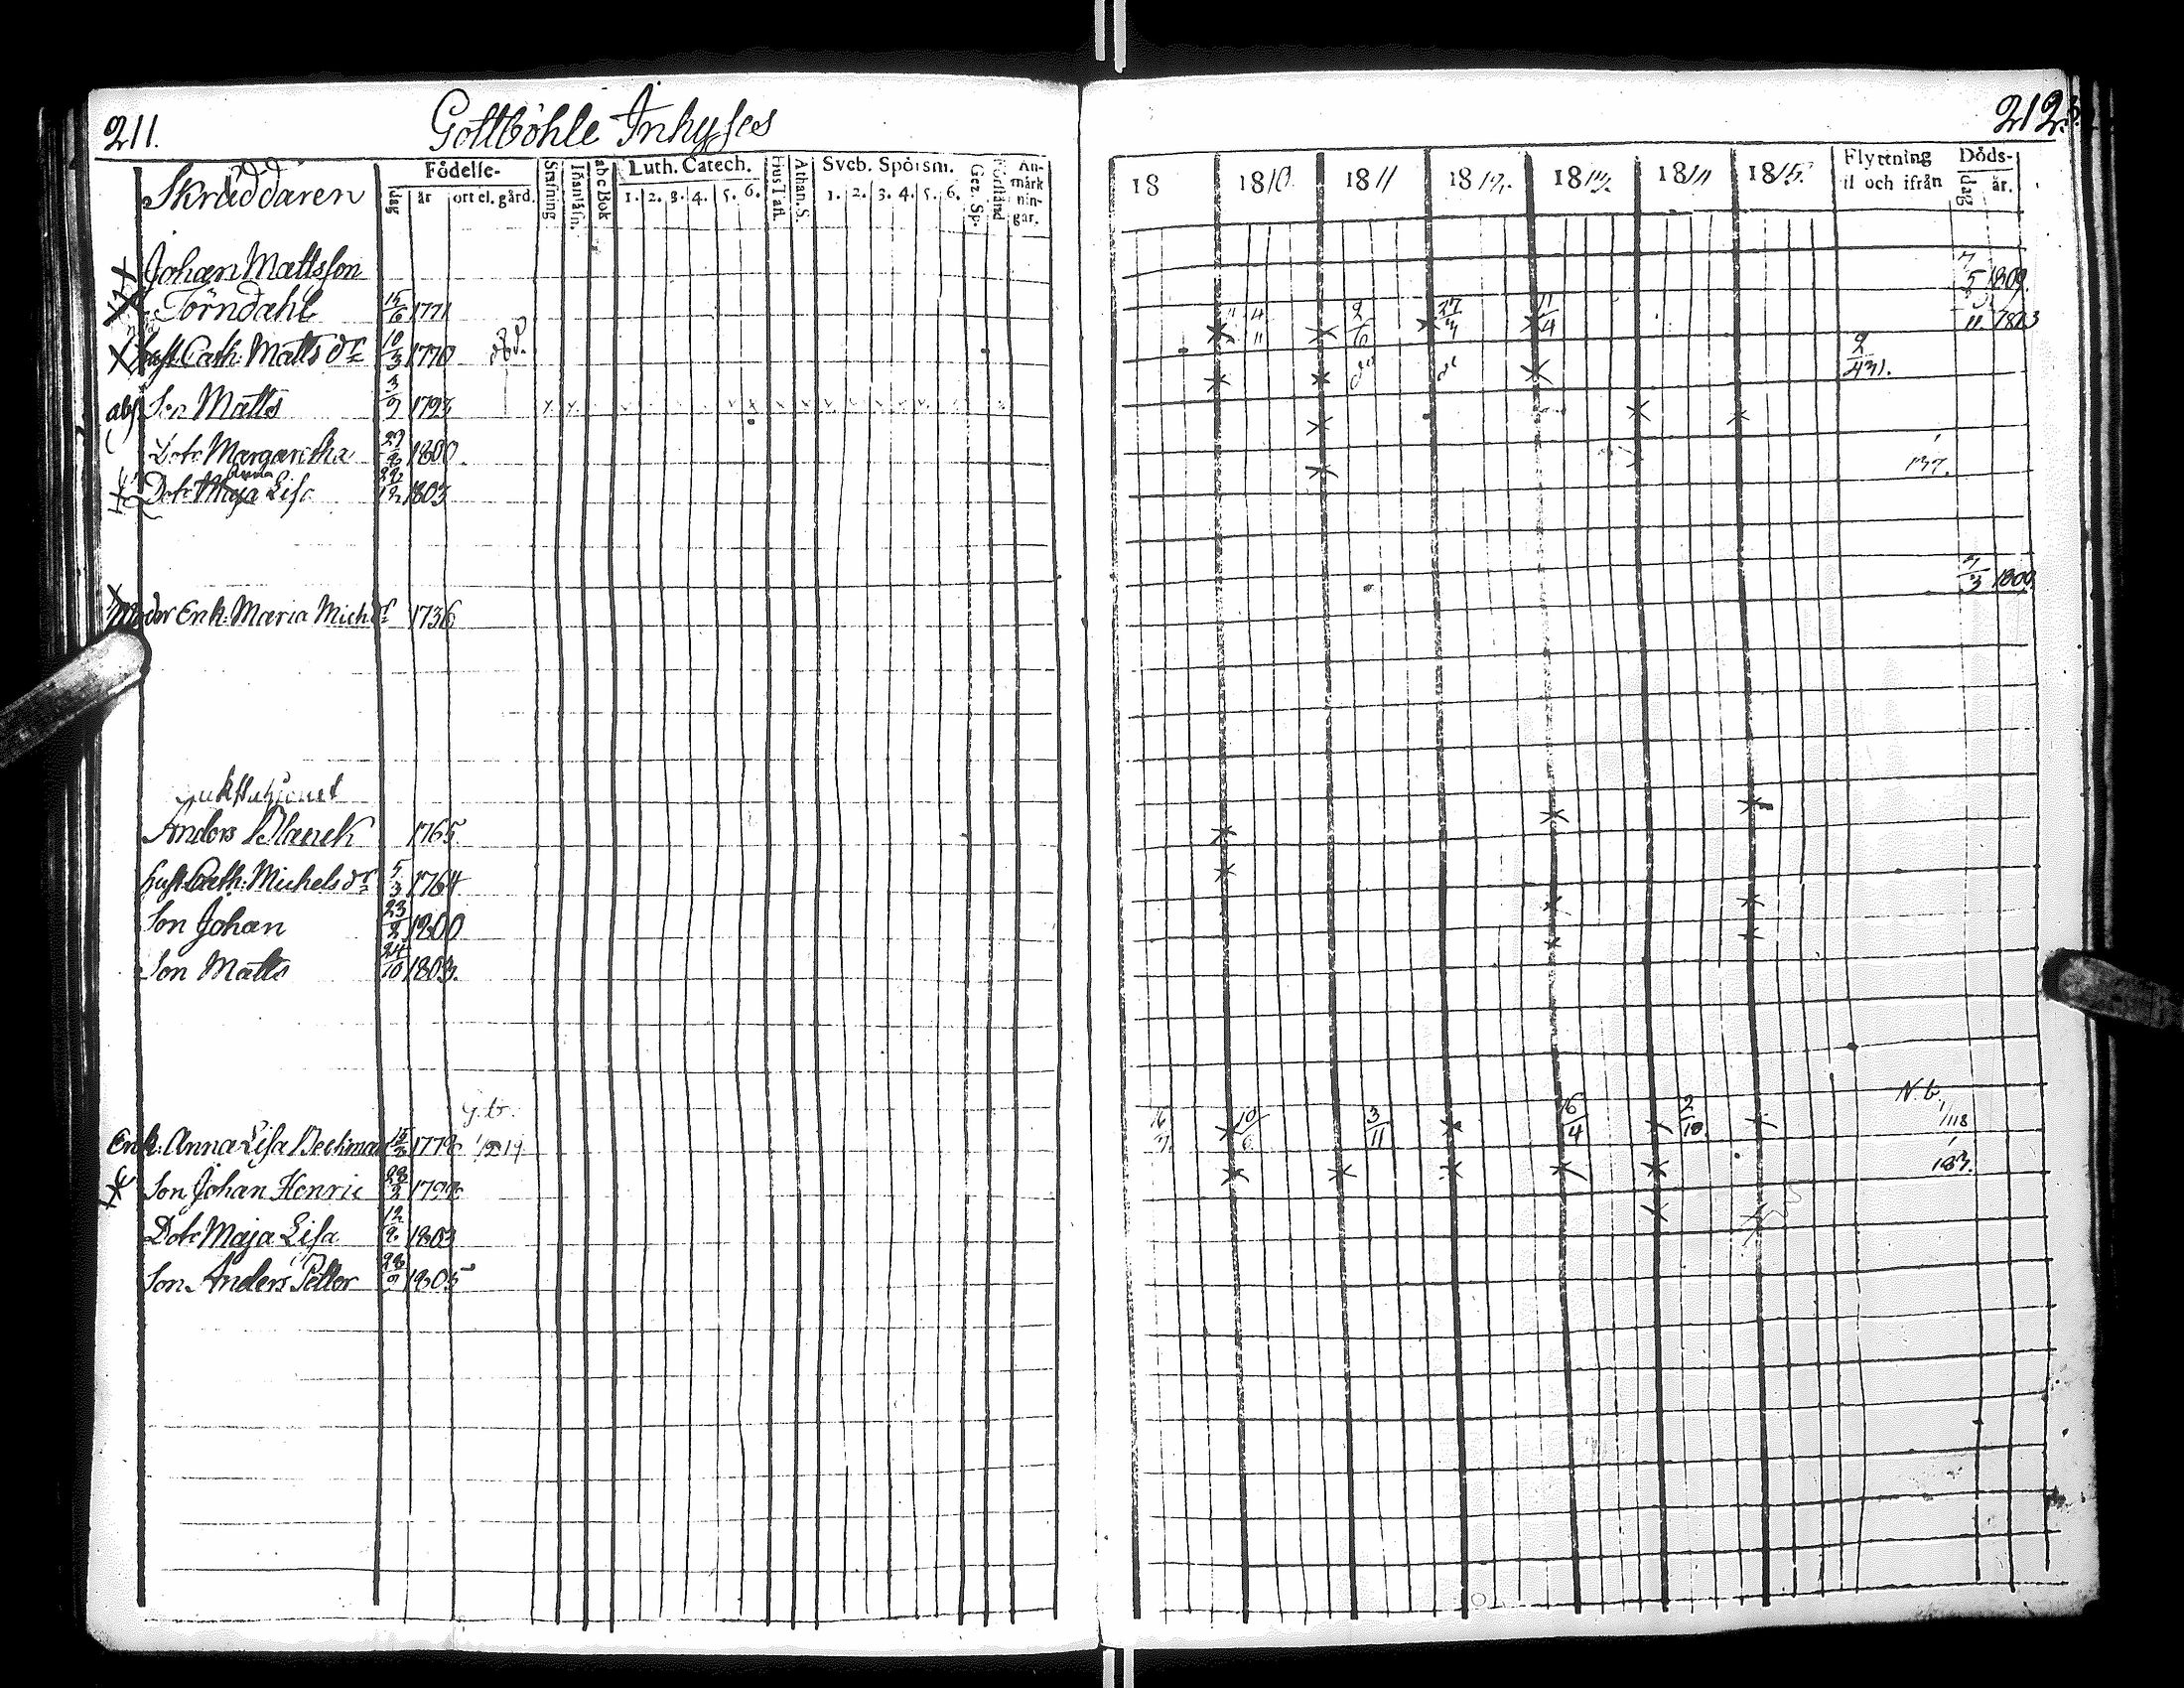 211.
Gottböhle Inhyses
212.
Skräddaren
Födelse-
dag
år
ort el. gård.
abc Bok
Luth. Catech.
1. 2. 3. 4. 5. 6.
Athan. S.
Sveb. Spörsm.
1. 2. 3. 4. 5. 6.
Gez. Sp.
An-
märk
nin-
gar.
18
1810.
1811
1812.
1813.
1814
1815.
Flyttning
til och ifrån
Döds-
dag
år.
Johan Mattsson
7/5 1809.
Törndahl 15/6 1771
11 1813
hust. Cath: Matts dr 10/3 1770
11 4/11 2/6 27/4 11/4
2/431.
abs Son Matts 3/9 1793
Dotr Margaretha 29 1800.
137.
Dotr Maja Anna Lisa 22/12 1803
7/3 1809
Moder Enk: Maria Mich dr 1736
Anders Blanck 1765.
hust. Cath: Michels dr 5/3 1764
Son Johan 23/2 1800
Son Matts 24/10 1803.
N. b.
Enk: Anna Lisa Beckman 1778
10/6 3/11 16/4 2/10.
1/118
Son Johan Henric 28/3 1799
183.
Dotr Maja Lisa 12/9. 1803
Son Anders Petter 28/9 1805